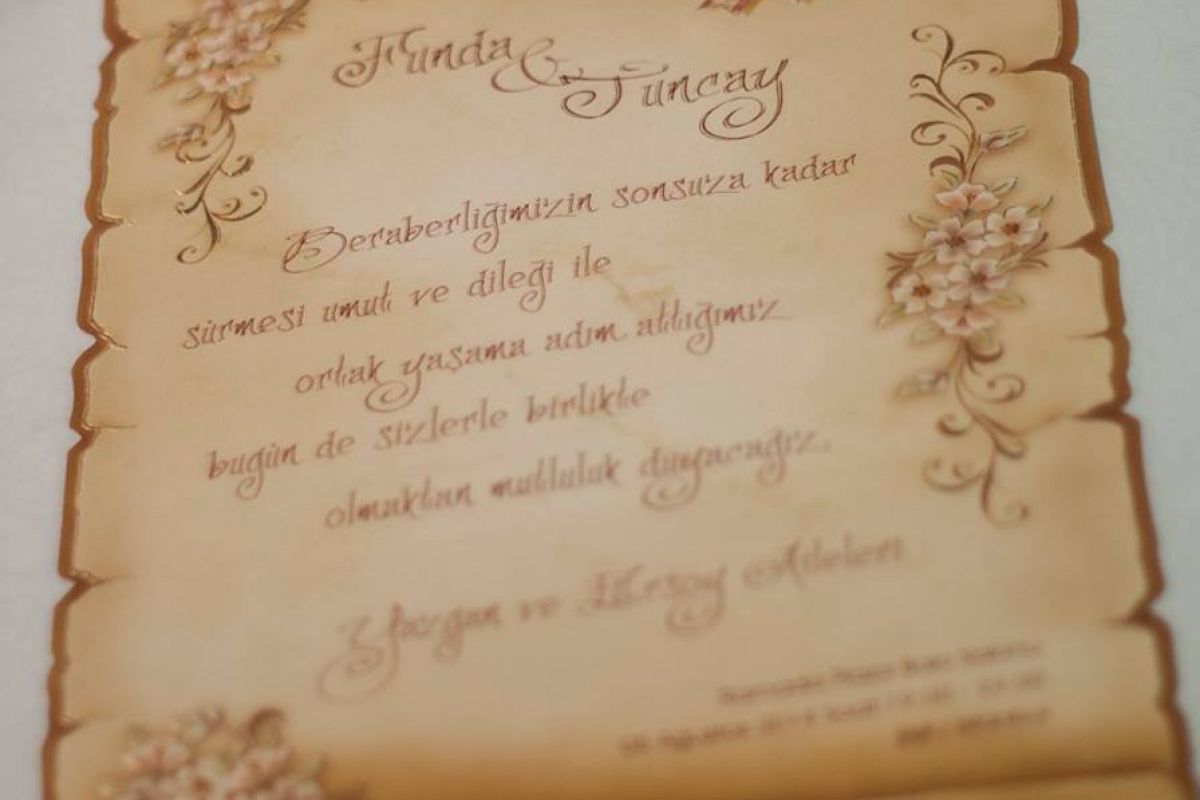 Funda & Tuncay
Beraberliğimizin sonsuza kadar
sürmesi umut ve dileği ile
ortak yaşama adım attığımız
bugün de sizlerle birlikte
olmaktan mutluluk duyacağız.
Yazgan ve Ersoy Aileleri